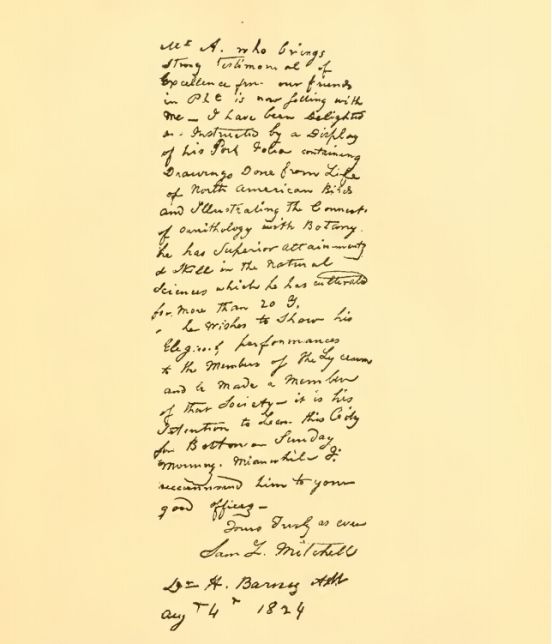 Mr A. who brings
Strong Testimonial of
Excellence from our friends
in Pha is now sitting with
me — I have been delighted
& Instructed by a Display
of his Port Folio containing
Drawings Done from Life
of North American Birds
and Illustrating the Connect.
of ornithology with Botany.
he has Superior attainments
& Skill in the natural
Sciences which he has cultivated
for more than 20 Y.
he wishes to Show his
Elegant performances
to the Members of the Lyceum
and be made a Member
of that Society — it is his
Intention to Leave this City
for Boston on Sunday
Morning. Meanwhile I
recommend him to your
good offices —
Yours Truly as ever
Sam L. Mitchell
Dr H. Barnes
aug 4 1824